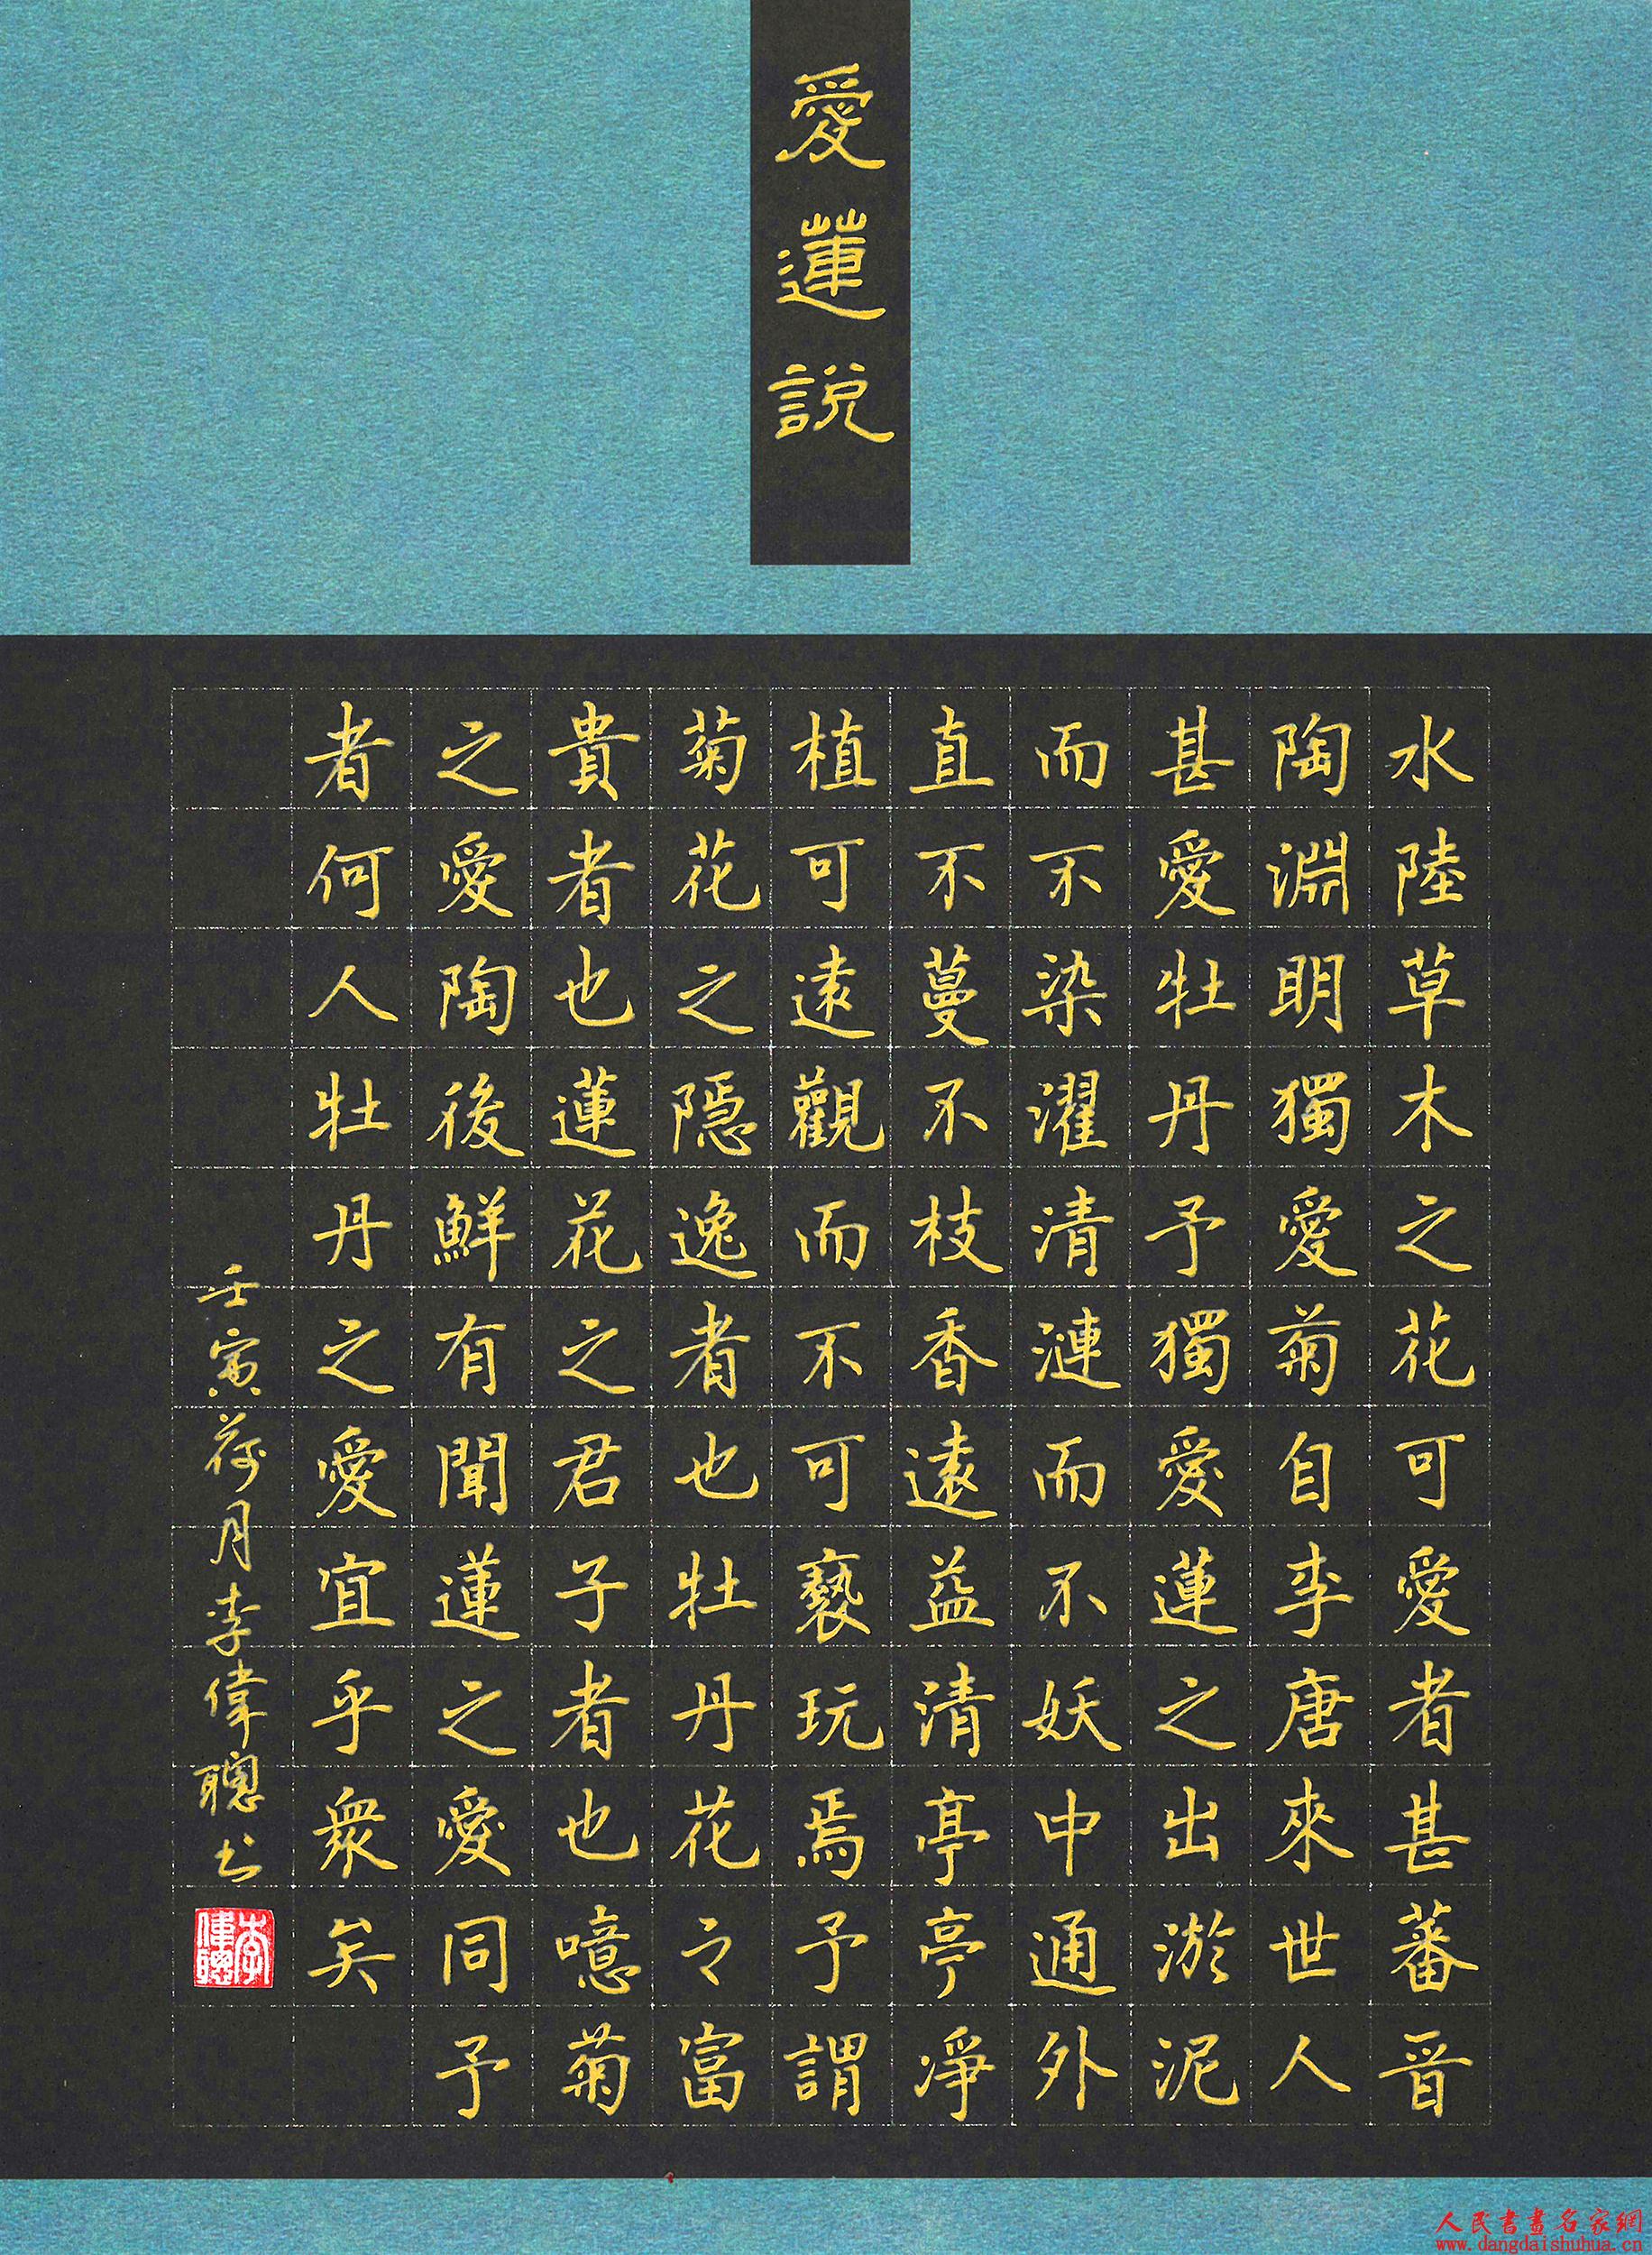 愛蓮說
水陸草木之花可愛者甚蕃晉
陶淵明獨愛菊自李唐來世人
甚愛牡丹予獨愛蓮之出淤泥
而不染濯清漣而不妖中通外
直不蔓不枝香遠益清亭亭凈
植可遠觀而不可褻玩焉予謂
菊花之隱逸者也牡丹花之富
貴者也蓮花之君子者也噫菊
之愛陶後鮮有聞蓮之愛同予
者何人牡丹之愛宜乎衆矣
壬寅荷月李偉聰书
李偉聰
人民書畫名家網
www.dangdaishuhua.cn